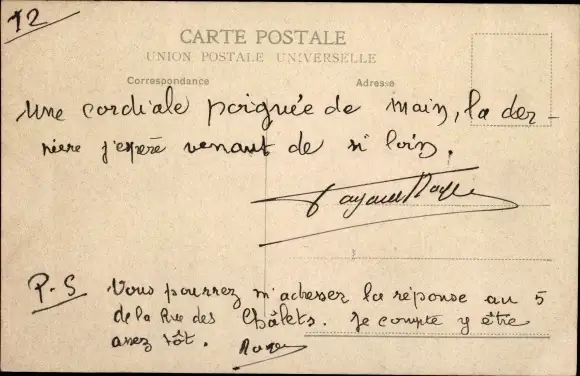 12
CARTE POSTALE
UNION POSTALE UNIVERSELLE
Correspondance
Adresse
Une cordiale poignée de main, la der-
nière j'espère venant de si loin.
P-S Vous pourrez m'adresser la réponse au 5
de la Rue des Châlets. Je compte y être
assez tôt. Roger